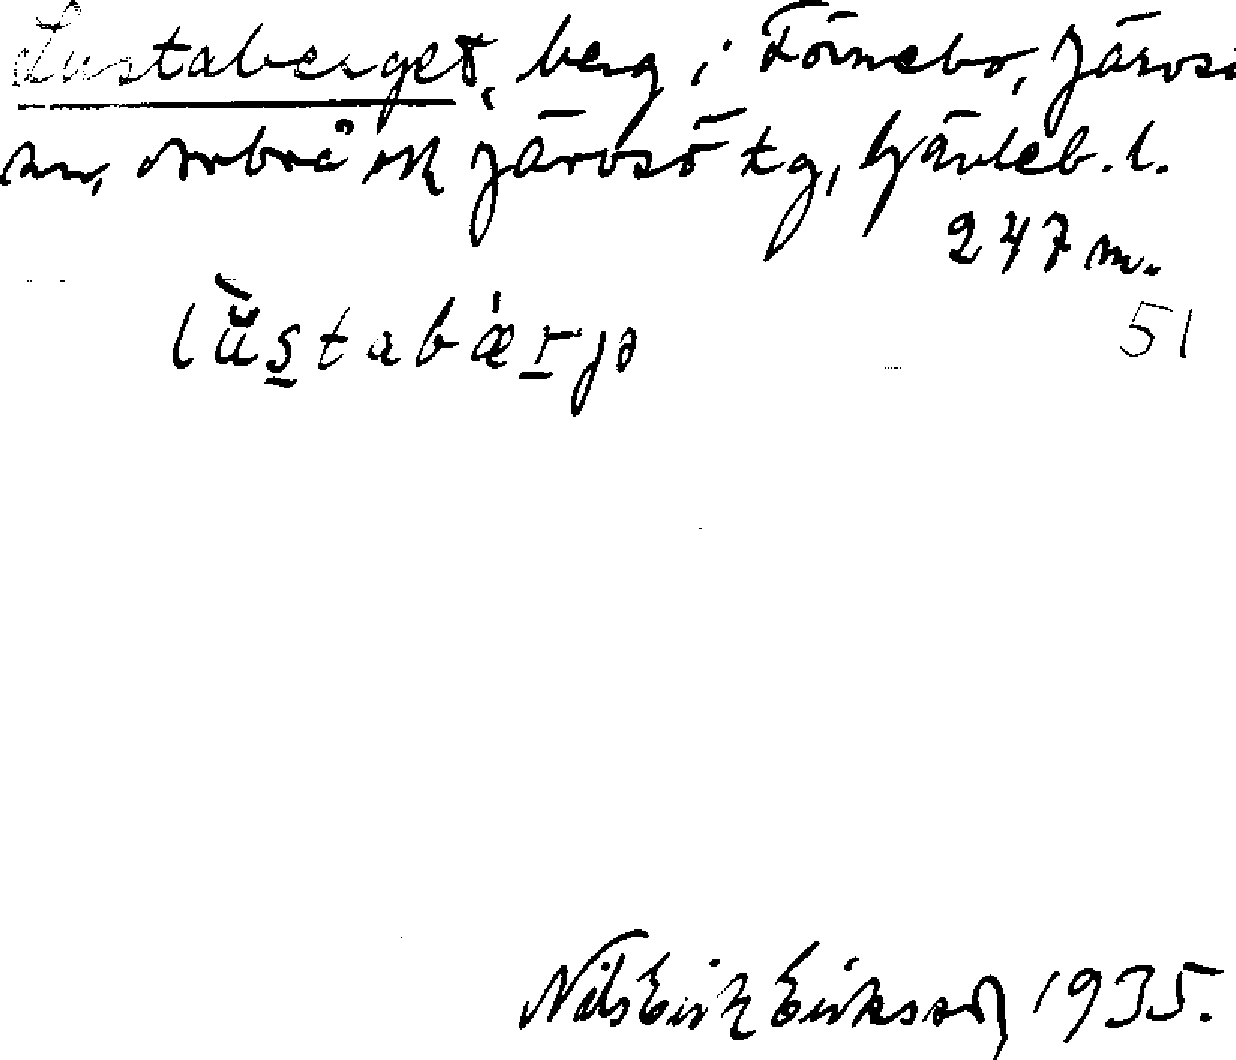 Lustaberget, berg i Förnebo, Järvsö
sn, Arbrå ock Järvsö tg, Gävleb. l.
247 m.
51
lùstabǽrjə
Nils Erik Eriksson 1935.